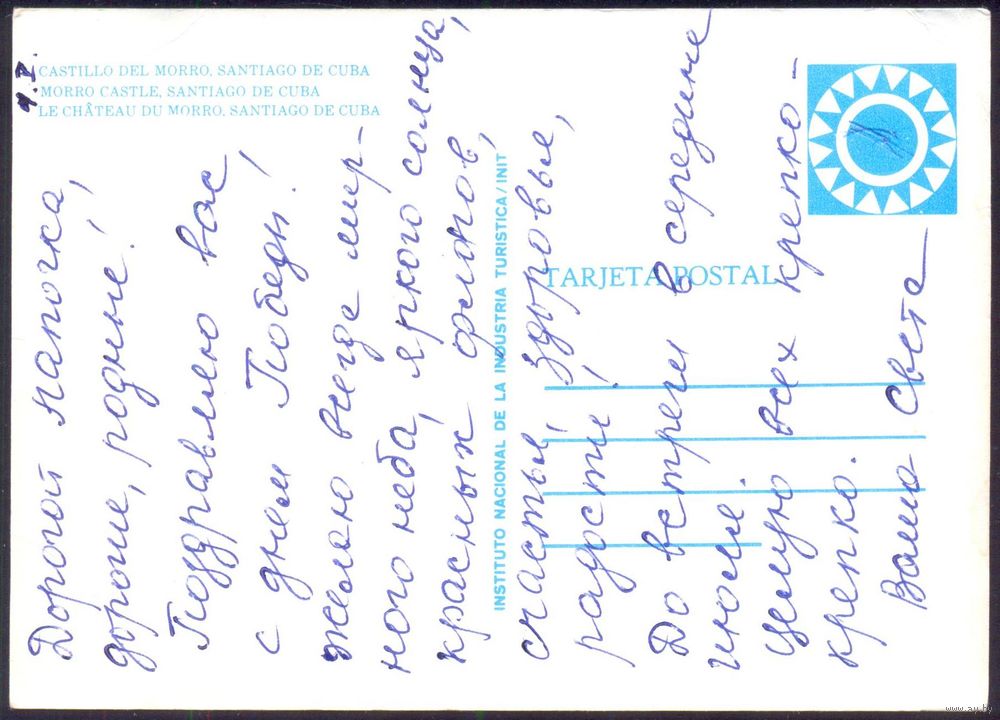 CASTILLO DEL MORRO, SANTIAGO DE CUBA
MORRO CASTLE, SANTIAGO DE CUBA
LE CHÂTEAU DU MORRO, SANTIAGO DE CUBA
INSTITUTO NACIONAL DE LA INDUSTRIA TURISTICA/INIT
TARJETA POSTAL
Дорогой папочка,
дорогие, родные!
Поздравляю вас
с днем Победы!
Желаю всегда мир-
ного неба, яркого солнца,
красных флагов,
счастья, здоровья,
радости!
До встречи в середине
июля.
Целую всех крепко-
крепко.
Ваша Света
www.ay.by